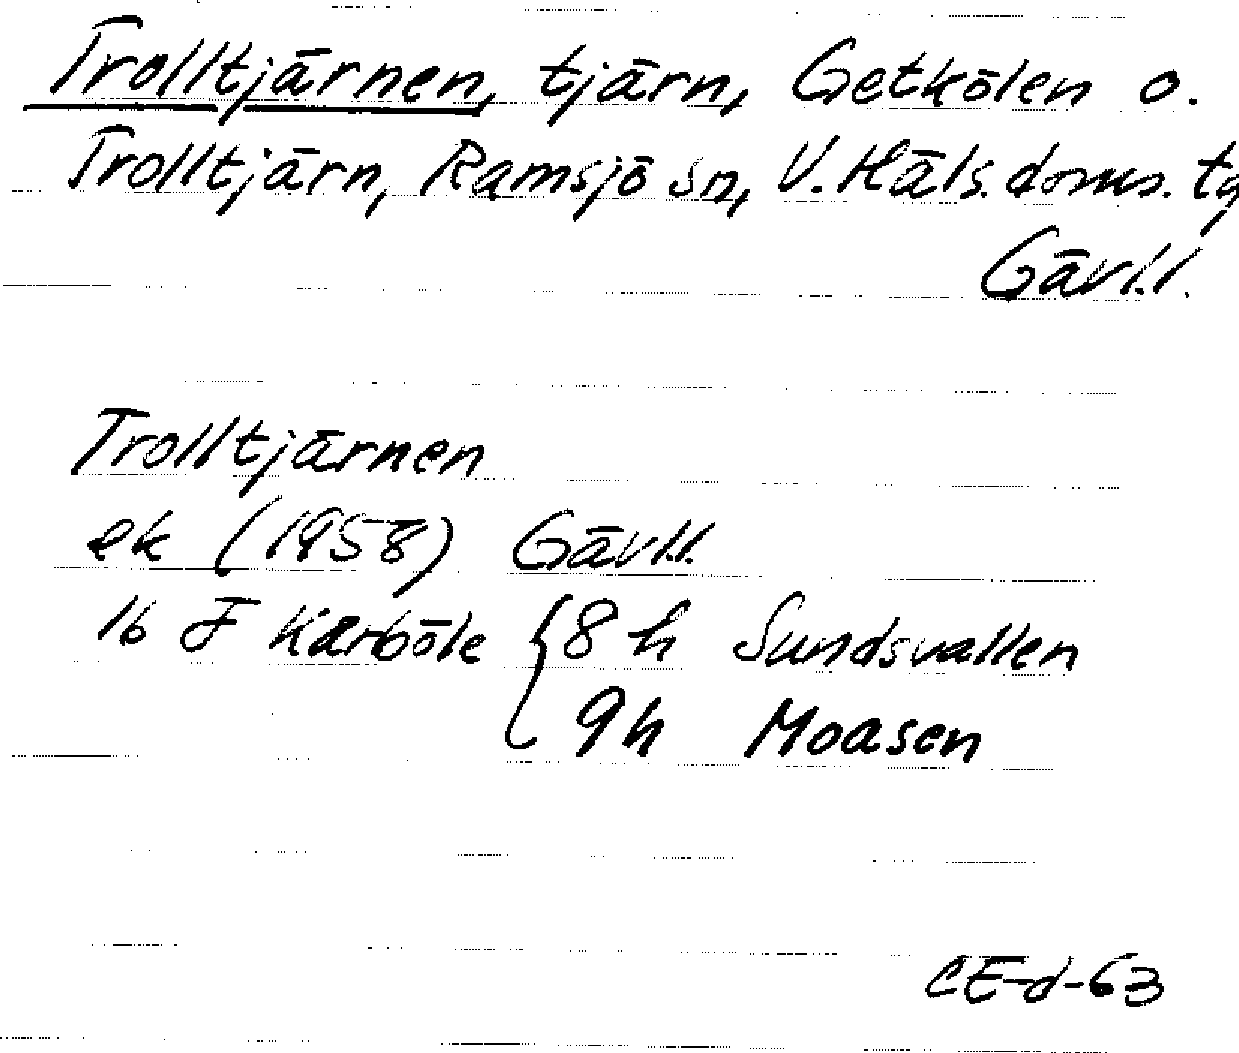 Trolltjärnen, tjärn, Getkölen o.
Trolltjärn, Ramsjö sn, V. Häls. doms. tg
Gävl.l.
Trolltjärnen
ek (1958) Gävl.l.
16 F Kårböle { 8 h Sundsvallen
9h Moasen
CE-d-63